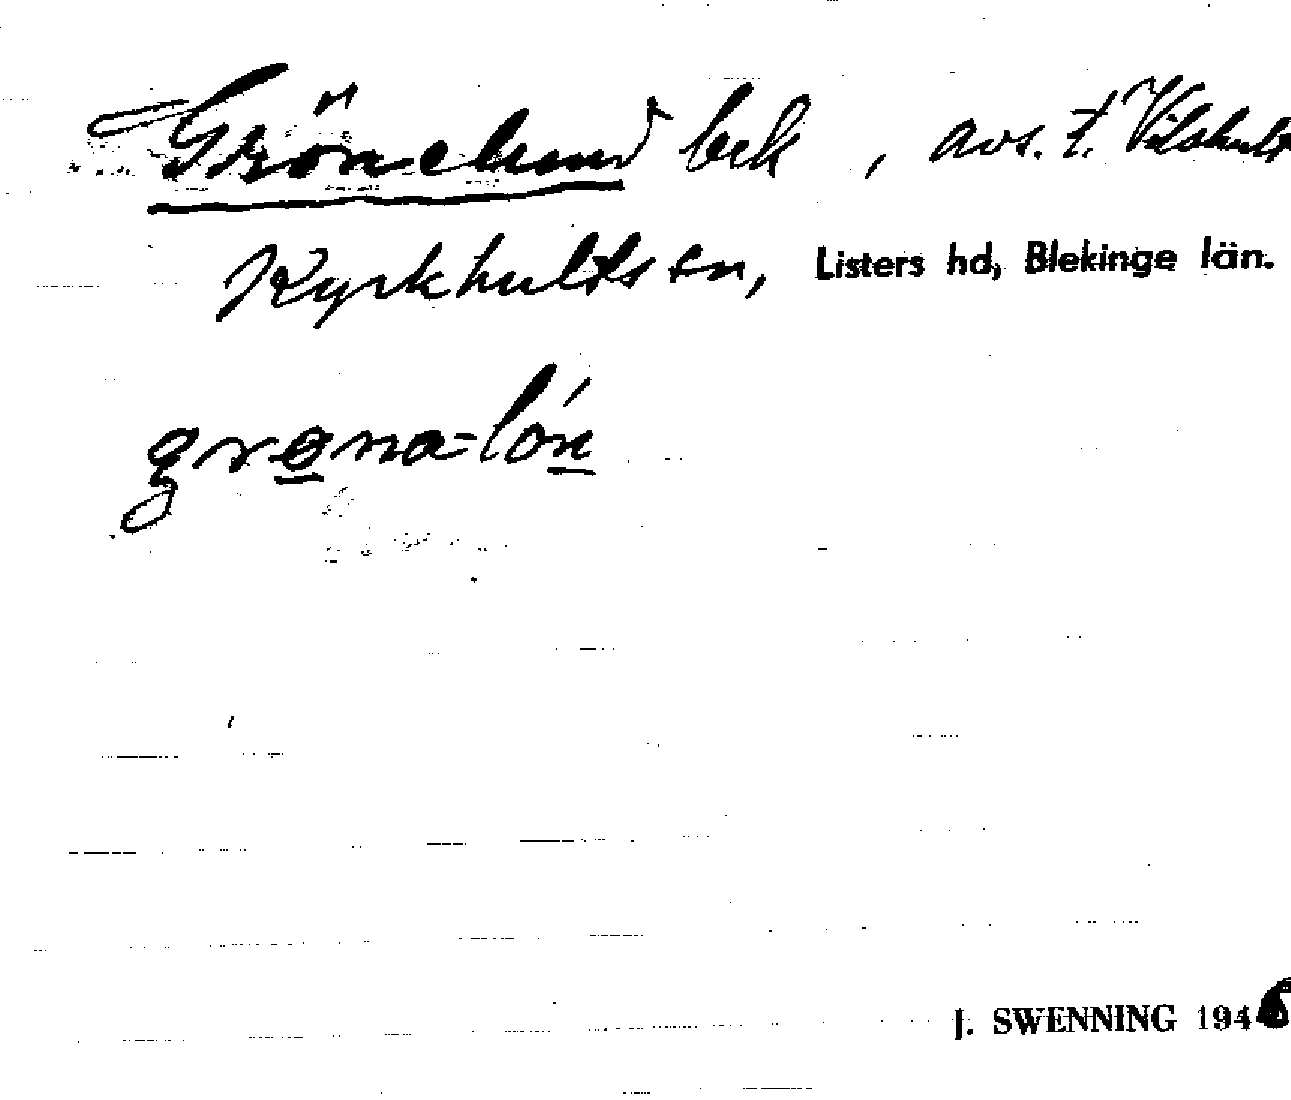 Grönelund bek , avs. t. Vilshult
Kyrkhults sn, Listers hd, Blekinge län.
grøna-lón
J. SWENNING 1946